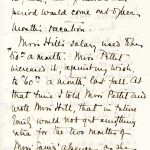 period would come out of her
month's vacation.
Miss Hill's salary used to be
50 a month. Miss Pittel
increased it, against my wish,
to $60 a month, last fall. At
that time I told Miss Pittel and
wrote Miss Hill, that in future
Emily would not get anything
extra for the two months of
Miss absence, as she